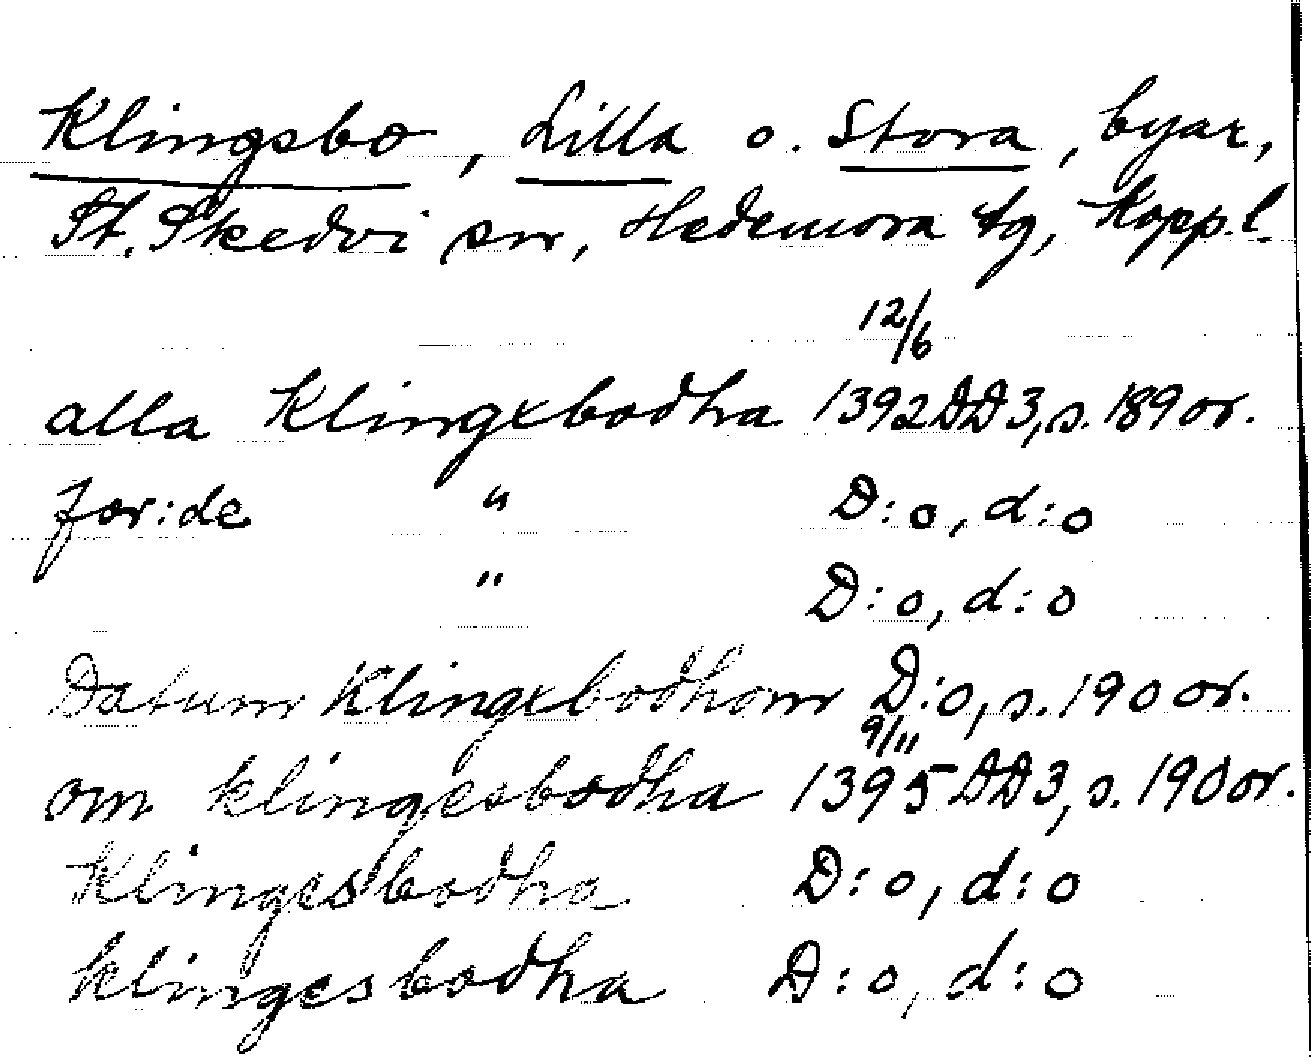 Klingsbo, Lilla o. Stora, byar,
St. Skedvi sn, Hedemora tg, Kopp.l.
12/6
alla Klingxbodha 1392 DD 3, s. 189 or.
for:de " D:o, d:o
" D:o, d:o
Datum Klingxbodhom D:o, s. 190 or.
9/11
om klingesbodha 1395 DD 3, s. 190 or.
Klingesbodha D:o, d:o
klingesbodha D:o, d:o